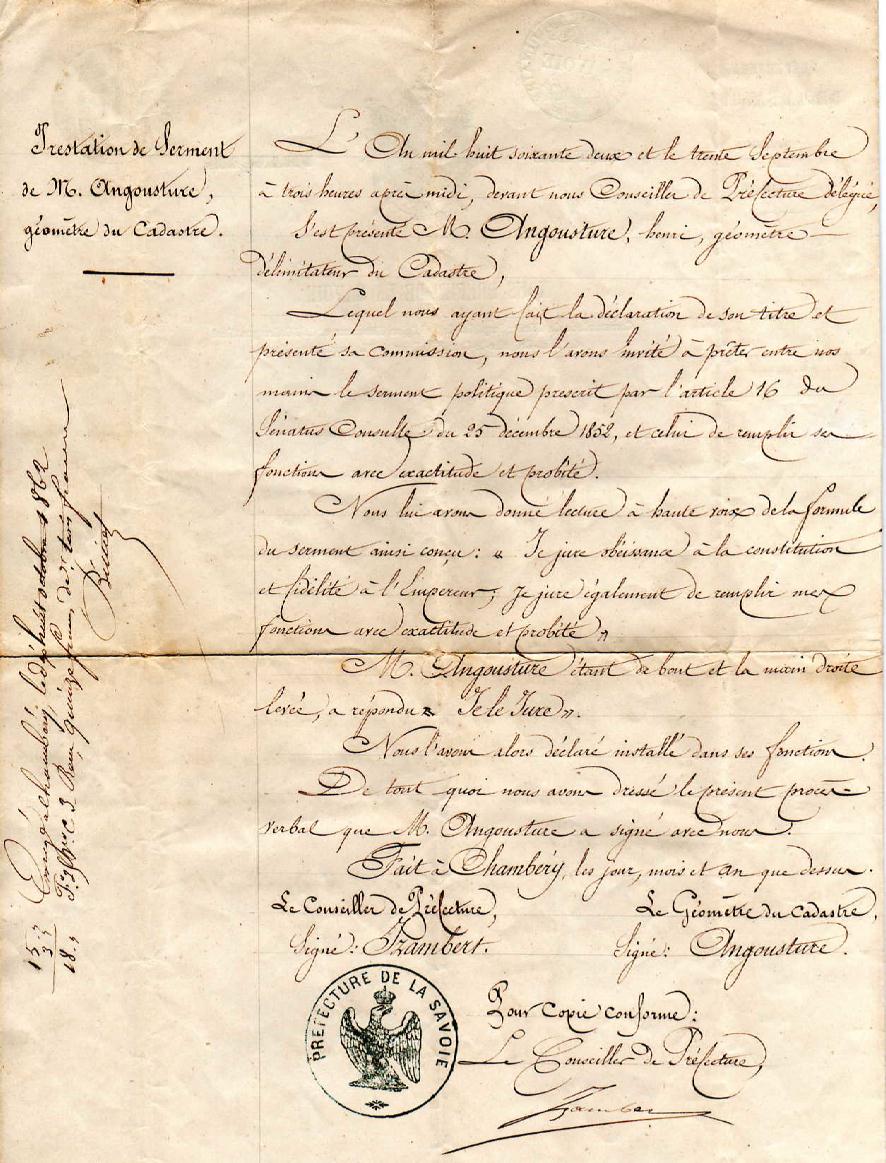 Prestation de Serment
de M. Angousture,
géomètre du Cadastre.
L'An mil huit soixante deux et le trente Septembre
à trois heures après midi, devant nous Conseiller de Préfecture délégué,
S'est présenté M. Angousture, henri, géomètre
délimitateur du Cadastre,
Lequel nous ayant fait la déclaration de son titre et
présenté sa commission, nous l'avons invité à prêter entre nos
mains le serment politique prescrit par l'article 16 du
Sénatus Consulte du 25 décembre 1852, et celui de remplir ses
fonctions avec exactitude et probité.
Nous lui avons donné lecture à haute voix de la formule
du serment ainsi conçu : « Je jure obéissance à la constitution
et fidélité à l'Empereur ; je jure également de remplir mes
fonctions avec exactitude et probité »
M. Angousture étant debout et la main droite
levée, a répondu « Je le Jure ».
Nous l'avons alors déclaré installé dans ses fonctions.
De tout quoi nous avons dressé le présent procès-
verbal que M. Angousture a signé avec nous.
Fait à Chambéry, les jour, mois et an que dessus.
Le Conseiller de Préfecture,
Signé : Izambert.
Le Géomètre du Cadastre,
Signé : Angousture.
Pour copie conforme :
Le Conseiller de Préfecture,
PRÉFECTURE DE LA SAVOIE
à Chambéry, le dix huit octobre 1862
C 3 Reçu quinze francs, de
15
3
18